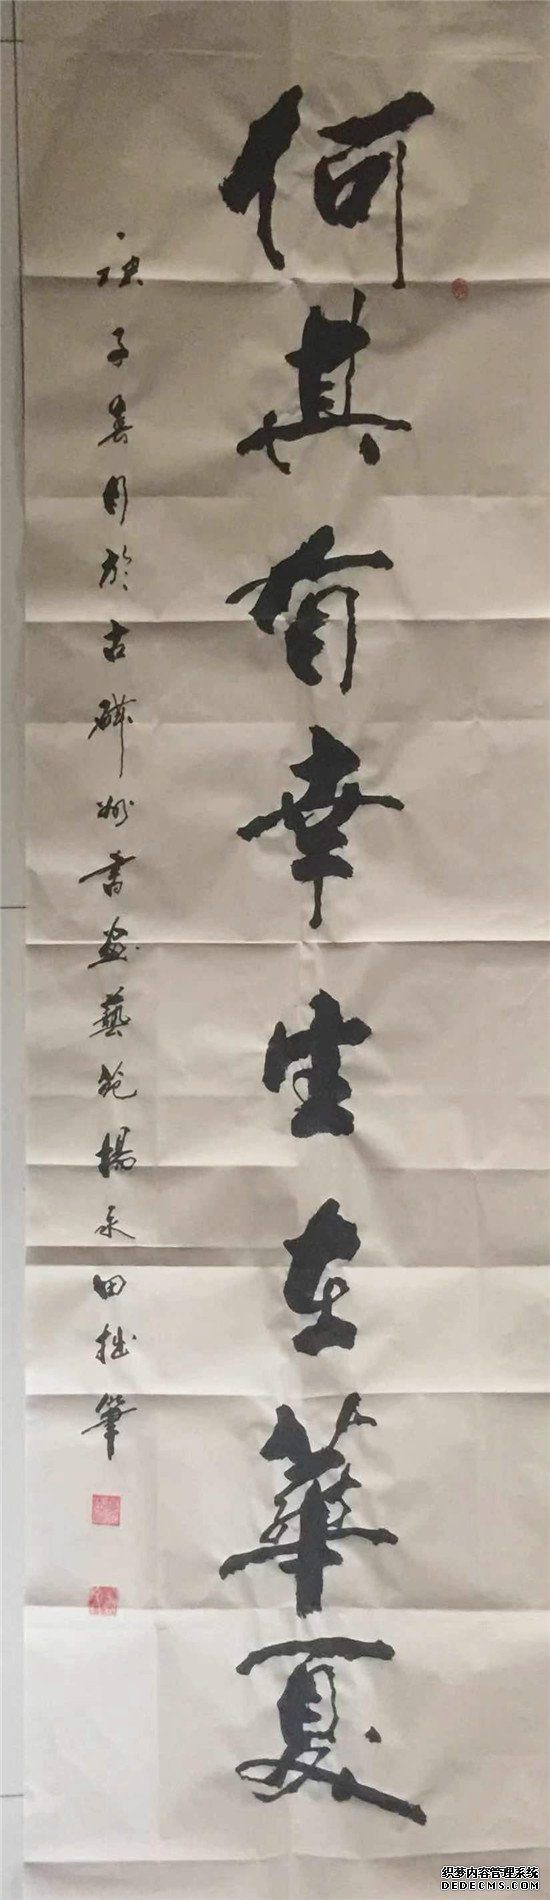 何其有幸生在華夏
庚子春月於古磁州書画藝苑楊永田拙筆
织梦内容管理系统
DEDECMS.COM